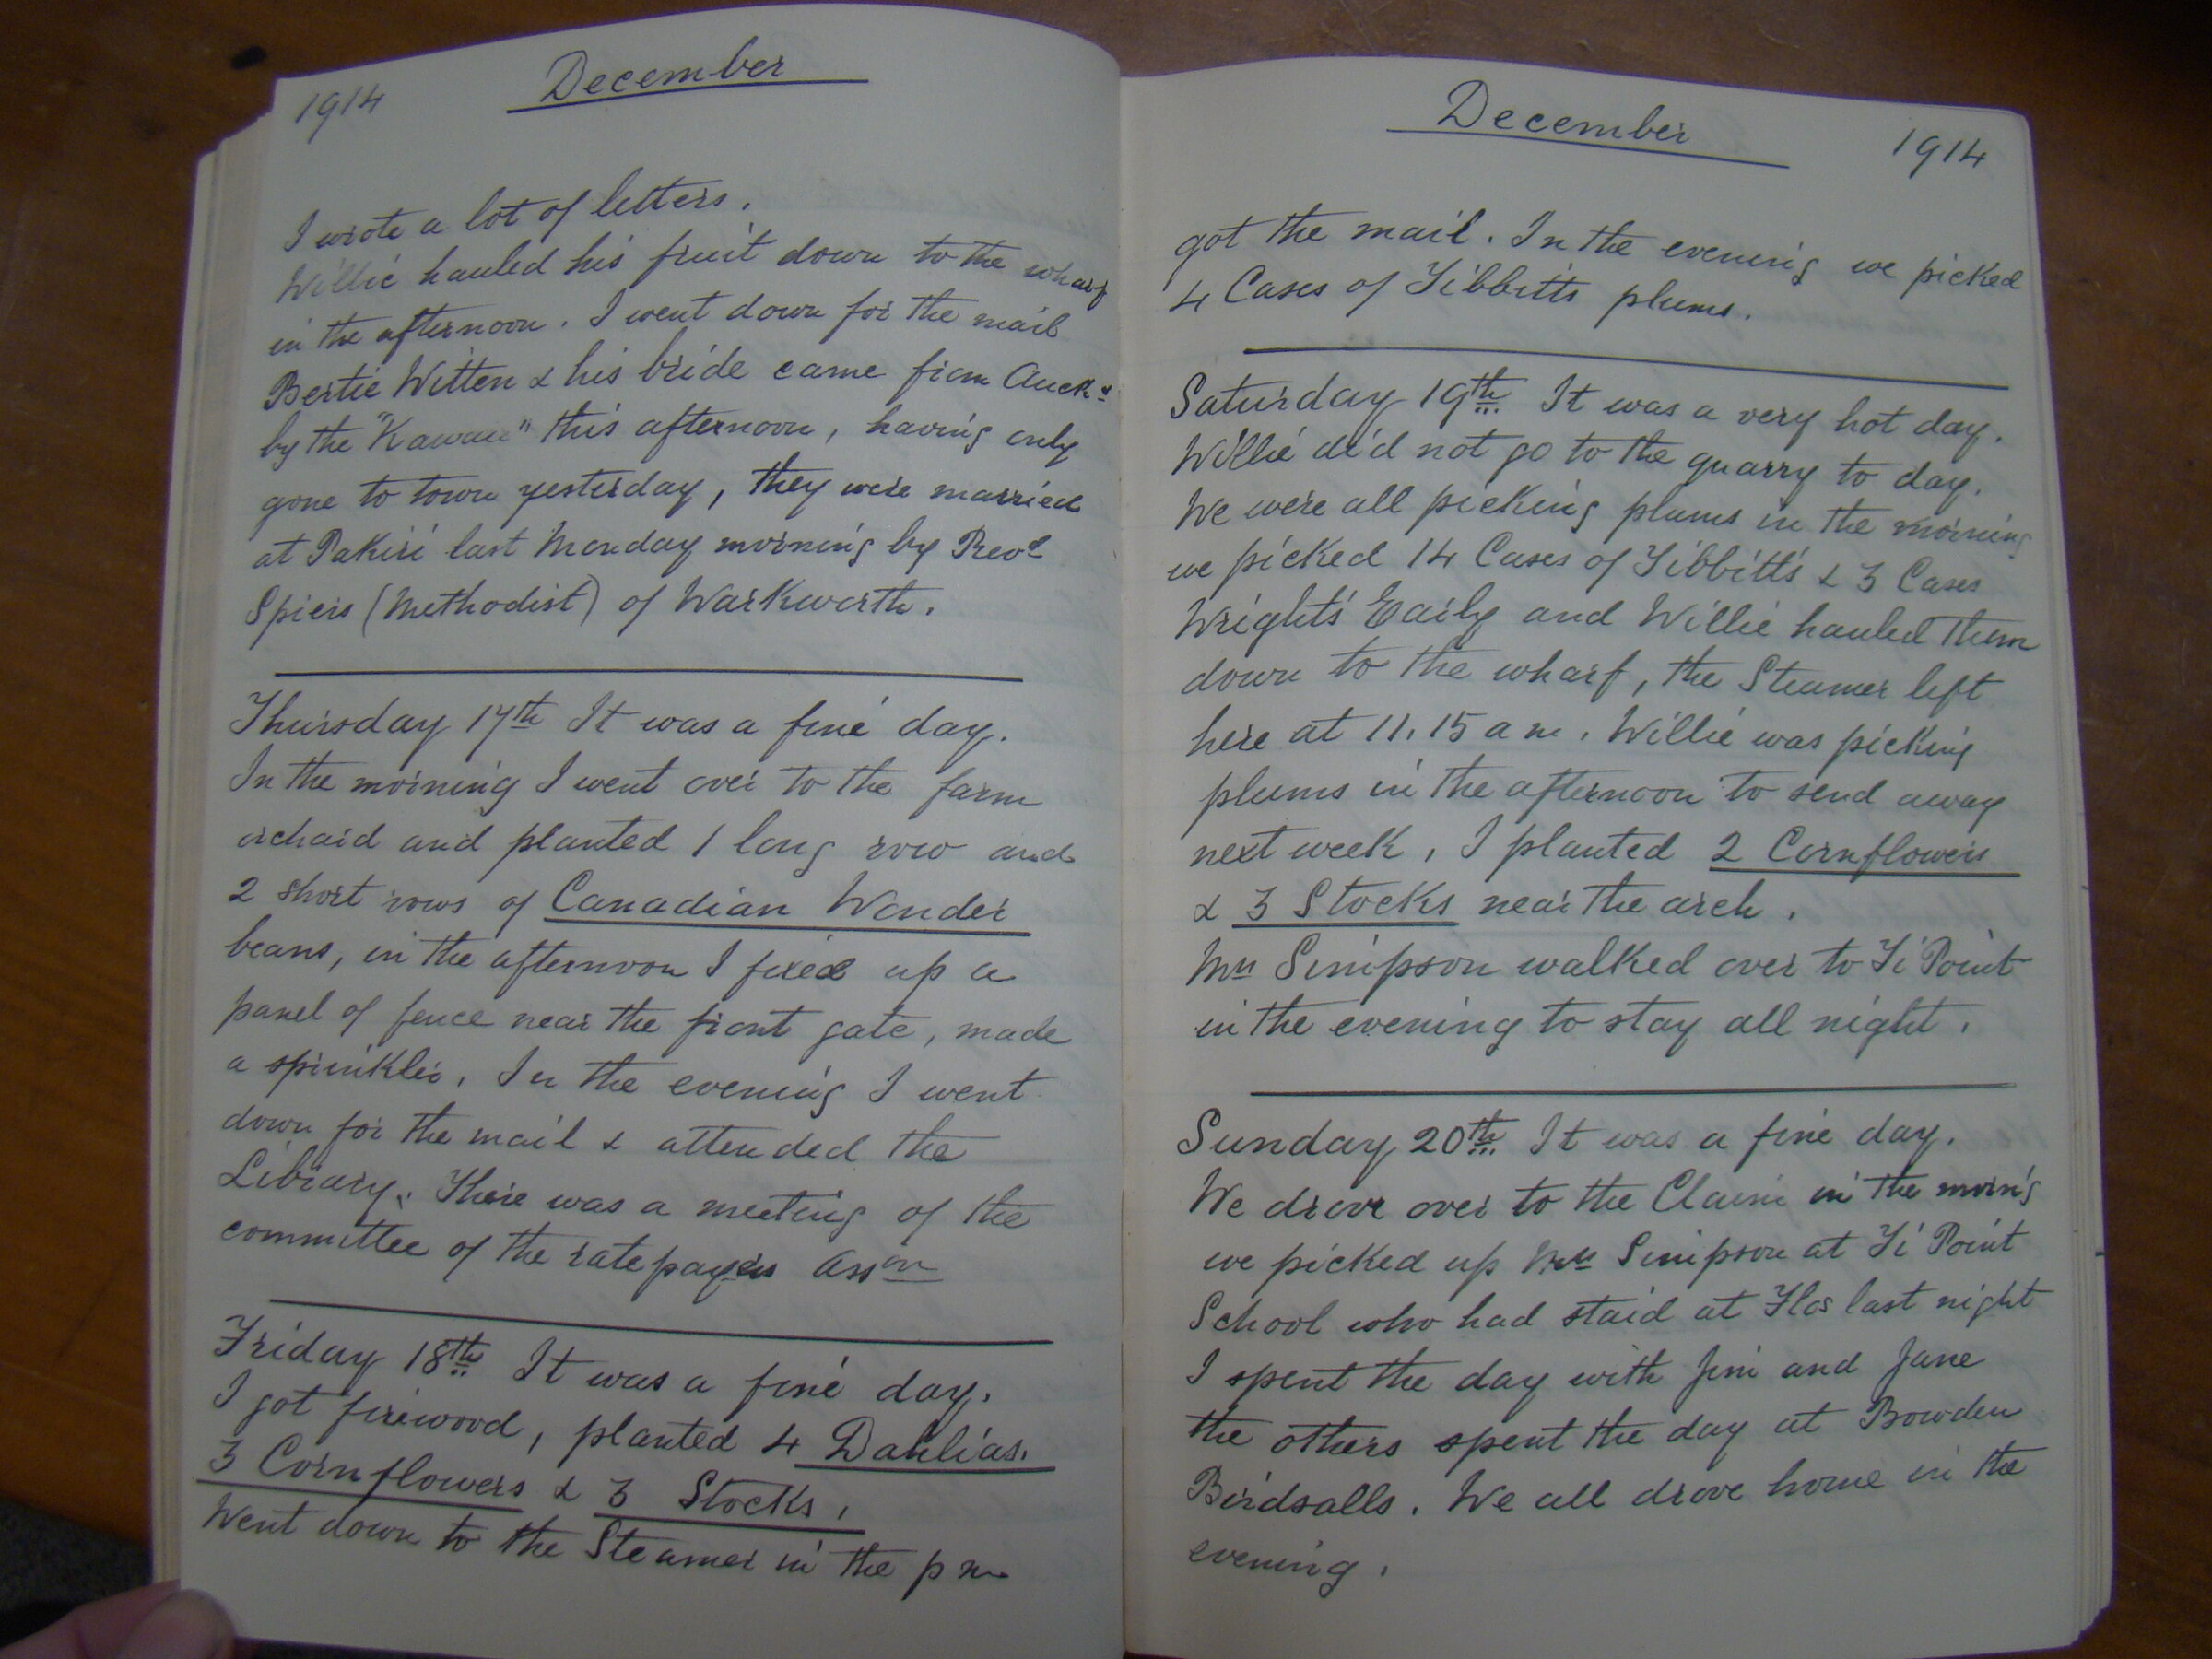 1914 December
I wrote a lot of letters.
Willie hauled his fruit down to the wharf
in the afternoon. I went down for the mail
Bertie Witten & his bride came from Auckd
by the "Kawau" this afternoon, having only
gone to town yesterday, they were married
at Pakiri last Monday morning by Revd
Spiers (Methodist) of Warkworth.
Thursday 17th It was a fine day.
In the morning I went over to the farm
orchard and planted 1 long row and
2 short rows of Canadian Wonder
beans, in the afternoon I fixed up a
panel of fence near the front gate, made
a sprinkler. In the evening I went
down for the mail & attended the
Library. There was a meeting of the
committee of the ratepayers Asson
Friday 18th It was a fine day.
I got firewood, planted 4 Dahlias.
3 Cornflowers & 3 Stocks.
Went down to the Steamer in the p m
December 1914
got the mail. In the evening we picked
4 Cases of Tibbitts plums.
Saturday 19th It was a very hot day.
Willie did not go to the quarry to day.
We were all picking plums in the morning
we picked 14 Cases of Tibbitts & 3 Cases
Wrights' Early and Willie hauled them
down to the wharf, the Steamer left
here at 11.15 a m. Willie was picking
plums in the afternoon to send away
next week, I planted 2 Cornflowers
& 3 Stocks near the arch.
Mrs Simpson walked over to Ti Point
in the evening to stay all night.
Sunday 20th It was a fine day.
We drove over to the Claim in the morn'g
we picked up Mrs Simpson at Ti Point
School who had staid at Flos last night
I spent the day with Jim and Jane
the others spent the day at Bowden
Birdsalls. We all drove home in the
evening.